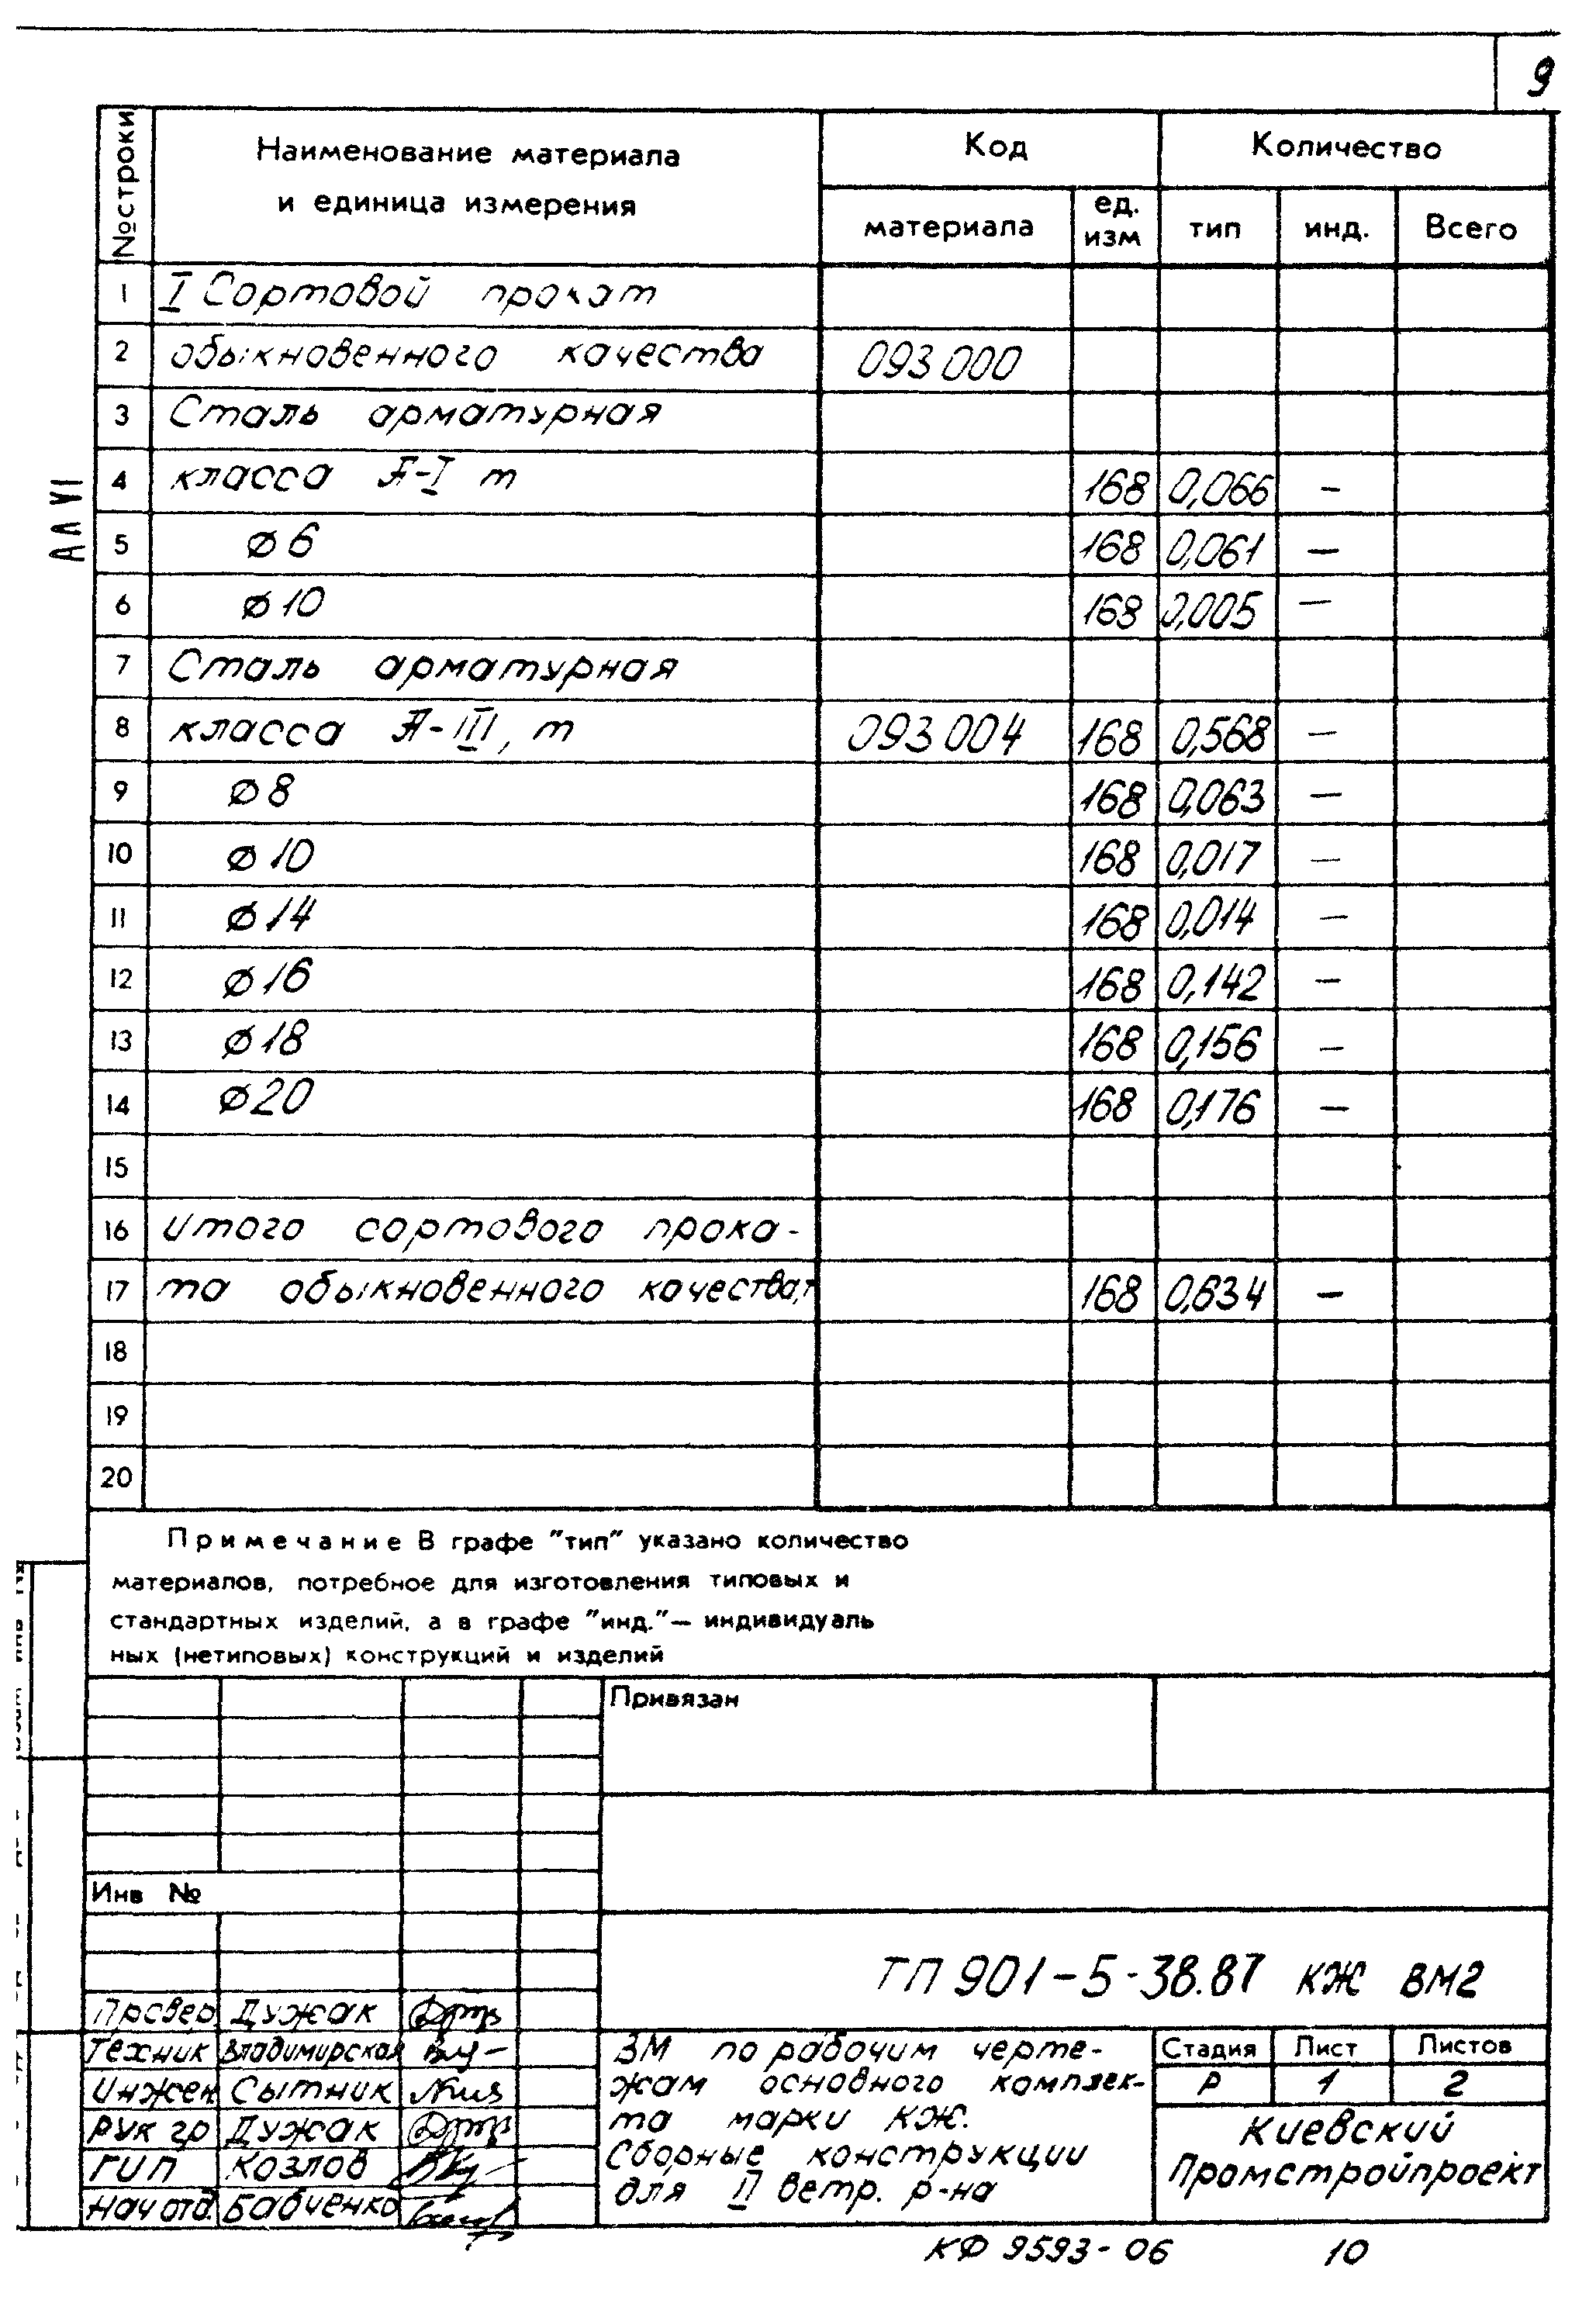 9
№строки Наименование материала и единица измерения Код Количество
материала ед. изм тип инд. Всего
1 I Сортовой прокат
2 обыкновенного качества 093000
3 Сталь арматурная
4 класса А-I т 168 0,066 —
5 ∅6 168 0,061 —
6 ∅10 168 0,005 —
7 Сталь арматурная
8 класса А-III, т 093004 168 0,568 —
9 ∅8 168 0,063 —
10 ∅10 168 0,017 —
11 ∅14 168 0,014 —
12 ∅16 168 0,142 —
13 ∅18 168 0,156 —
14 ∅20 168 0,176 —
15
16 Итого сортового прока-
17 та обыкновенного качества,т 168 0,634 —
18
19
20
Ал VI
Примечание В графе "тип" указано количество
материалов, потребное для изготовления типовых и
стандартных изделий, а в графе "инд."— индивидуаль
ных (нетиповых) конструкций и изделий
Привязан
Инв №
ТП 901-5-38.87 КЖ ВМ2
Провер. Дужак
Техник Владимирская
Инжен Сытник
Рук гр Дужак
ГИП Козлов
Нач отд. Бабченко
ВМ по рабочим черте-
жам основного комплек-
та марки КЖ.
Сборные конструкции
для II ветр. р-на
Стадия Лист Листов
Р 1 2
Киевский
Промстройпроект
КФ 9593-06 10